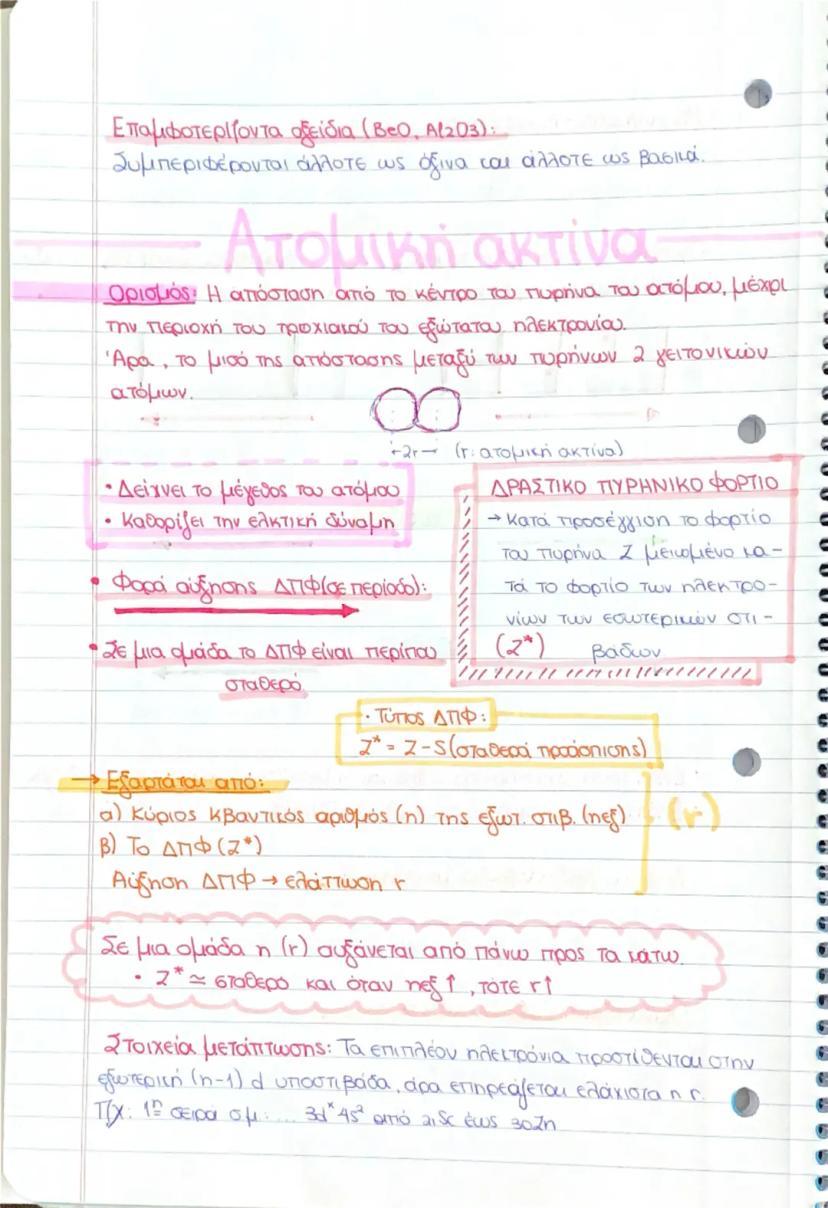 Επαμφοτερίζοντα οξείδια (BeO, Al2O3):
Συμπεριφέρονται άλλοτε ως όξινα και άλλοτε ως βασικά.
Ατομική ακτίνα
Ορισμός: Η απόσταση από το κέντρο του πυρήνα του ατόμου, μέχρι
την περιοχή του τροχιακού του εξώτατου ηλεκτρονίου.
Άρα, το μισό της απόστασης μεταξύ των πυρήνων 2 γειτονικών
ατόμων.
←2r→ (r: ατομική ακτίνα)
• Δείχνει το μέγεθος του ατόμου
• Καθορίζει την ελκτική δύναμη
• Φορά αύξησης ΔΠΦ (σε περίοδο):
• Σε μια ομάδα το ΔΠΦ είναι περίπου
σταθερό
ΔΡΑΣΤΙΚΟ ΠΥΡΗΝΙΚΟ ΦΟΡΤΙΟ
→ Κατά προσέγγιση το φορτίο
του πυρήνα Z μειωμένο κα-
τά το φορτίο των ηλεκτρο-
νίων των εσωτερικών στι-
(Z*) βάδων
• Τύπος ΔΠΦ:
Z* = Z - S (σταθερά προάσπισης)
→ Εξαρτάται από:
α) Κύριος κβαντικός αριθμός (n) της εξωτ. στιβ. (nεξ)
β) Το ΔΠΦ (Z*)
Αύξηση ΔΠΦ → ελάττωση r
(r)
Σε μια ομάδα η (r) αυξάνεται από πάνω προς τα κάτω.
• Z* ≃ σταθερό και όταν nεξ ↑, τότε r↑
Στοιχεία μετάπτωσης: Τα επιπλέον ηλεκτρόνια προστίθενται στην
εξωτερική (n-1) d υποστιβάδα, άρα επηρεάζεται ελάχιστα η r.
Π.χ: 1η σειρά σ.μ: ... 3dˣ 4s² από 21Sc έως 30Zn